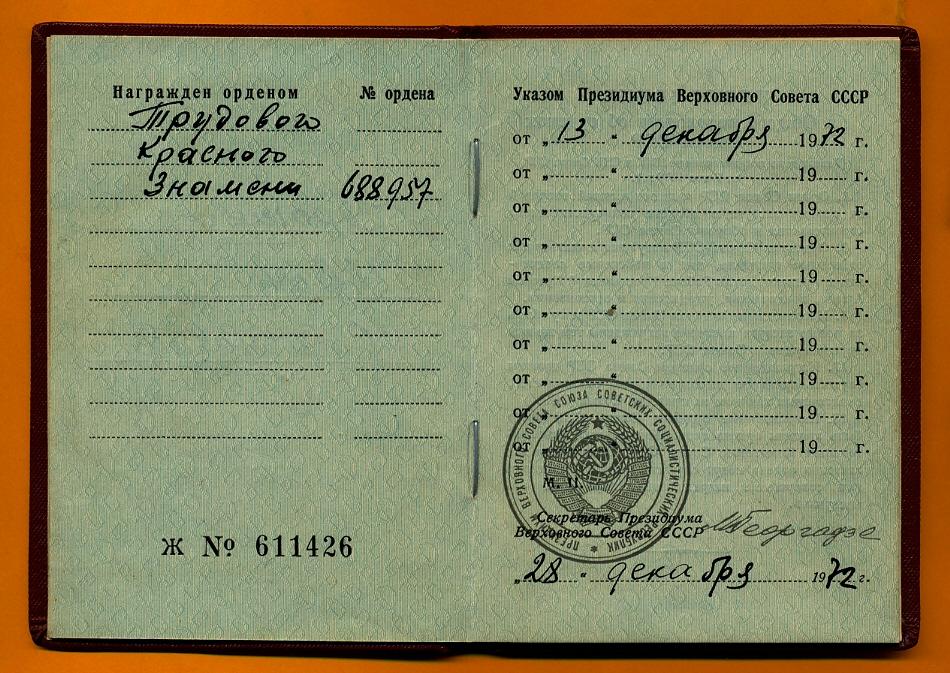 Награжден орденом № ордена
Трудового
Красного
Знамени 688957
Ж № 611426
Указом Президиума Верховного Совета СССР
от „ 13 “ декабря 1972 г.
от „ “ 19 г.
от „ “ 19 г.
от „ “ 19 г.
от „ “ 19 г.
от „ “ 19 г.
от „ “ 19 г.
от „ “ 19 г.
от „ “ 19 г.
от „ “ 19 г.
М. П.
ПРЕЗИДИУМ ВЕРХОВНОГО СОВЕТА СОЮЗА СОВЕТСКИХ СОЦИАЛИСТИЧЕСКИХ РЕСПУБЛИК
Секретарь Президиума
Верховного Совета СССР МГеоргадзе
„ 28 “ декабря 1972 г.